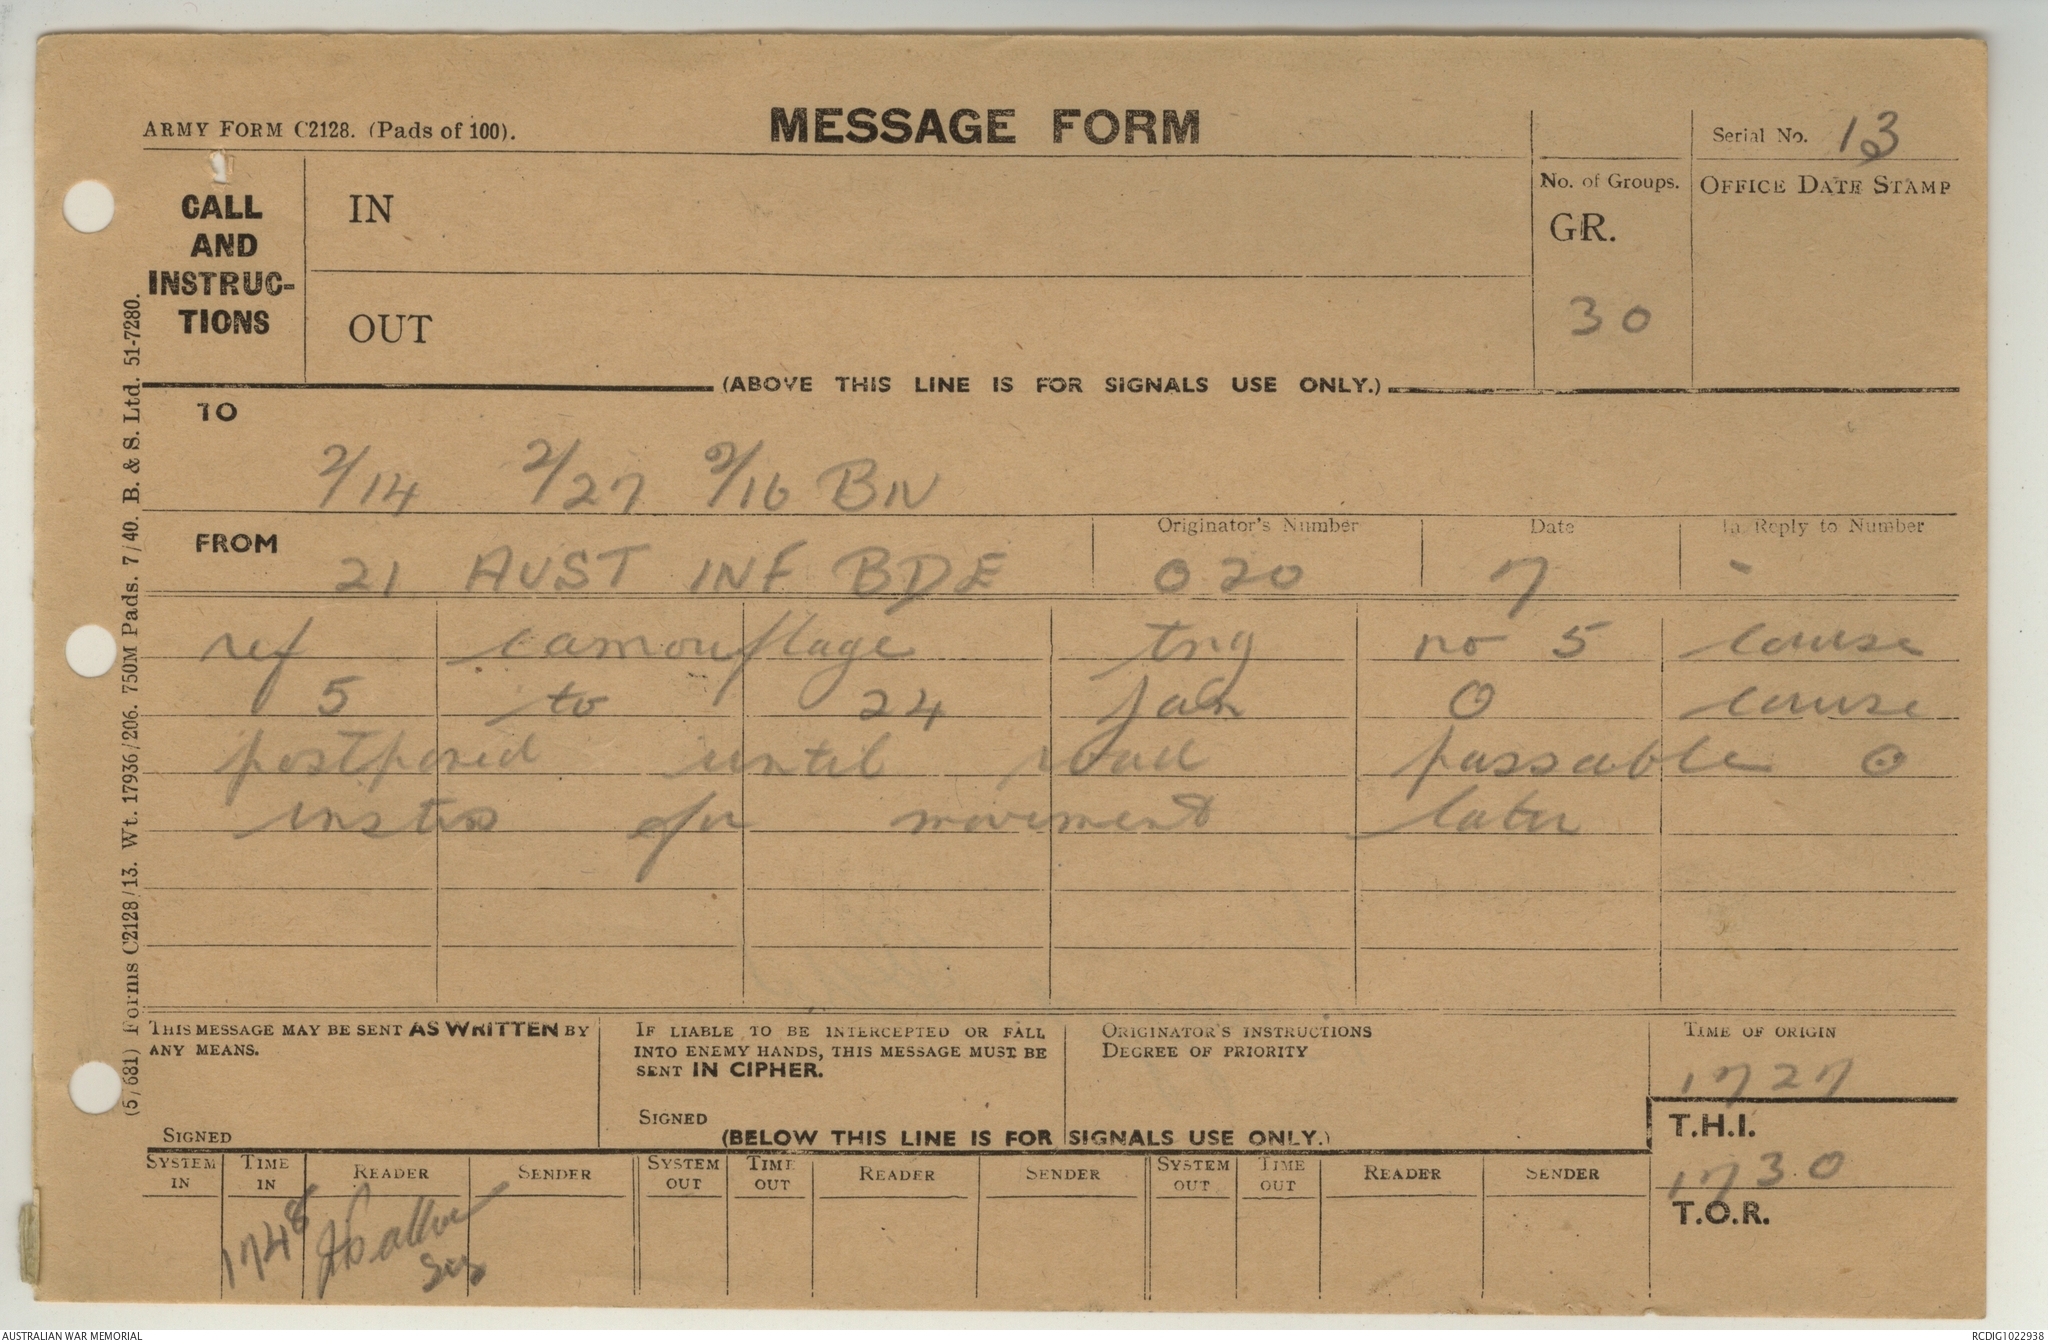 ARMY FORM C2128. (Pads of 100).
MESSAGE FORM
Serial No. 13
CALL
AND
INSTRUC-
TIONS
IN
OUT
No. of Groups.
GR.
30
OFFICE DATE STAMP
(ABOVE THIS LINE IS FOR SIGNALS USE ONLY.)
TO
2/14 2/27 2/16 BN
FROM
21 AUST INF BDE
Originator's Number
020
Date
7
In Reply to Number
-
ref camouflage tng no 5 course
5 to 24 Jan O course
postponed until road passable O
instns for movement later
THIS MESSAGE MAY BE SENT AS WRITTEN BY
ANY MEANS.
SIGNED
IF LIABLE TO BE INTERCEPTED OR FALL
INTO ENEMY HANDS, THIS MESSAGE MUST BE
SENT IN CIPHER.
SIGNED
ORIGINATOR'S INSTRUCTIONS
DEGREE OF PRIORITY
TIME OF ORIGIN
1727
(BELOW THIS LINE IS FOR SIGNALS USE ONLY.)
T.H.I.
1730
T.O.R.
SYSTEM IN
TIME IN
READER
SENDER
SYSTEM OUT
TIME OUT
READER
SENDER
SYSTEM OUT
TIME OUT
READER
SENDER
1748
(5/681) Forms C2128/13. Wt. 17936/206. 750M Pads. 7/40. B. & S. Ltd. 51-7280.
AUSTRALIAN WAR MEMORIAL
RCDIG1022938